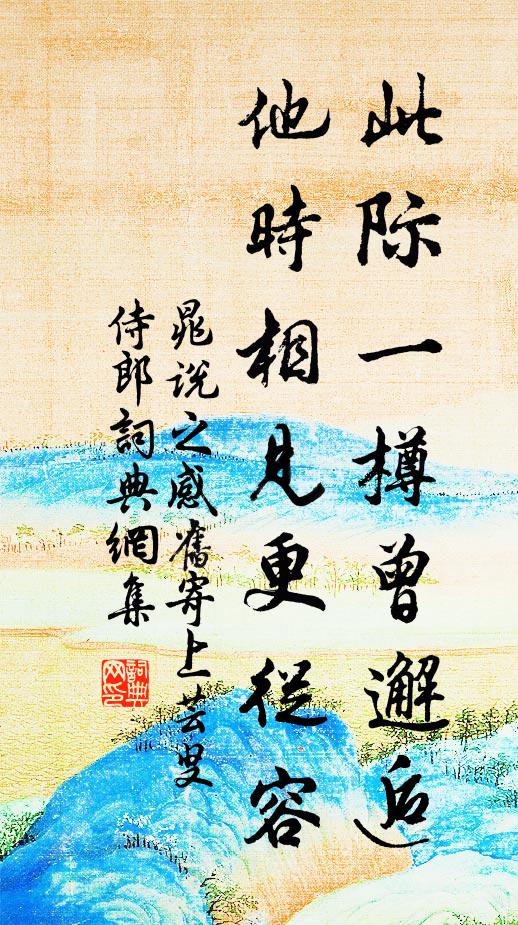 此际一樽曾邂逅
他時相見更從容
晁说之感舊寄上芸叟
侍郎詞典網集
詞典
网印